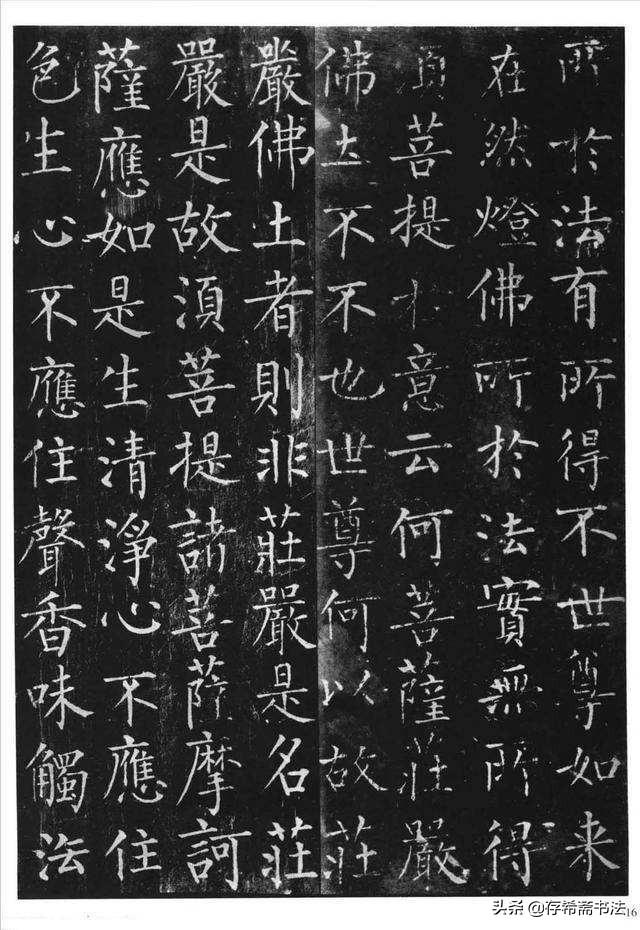 所於法有所得不世尊如来
在然燈佛所於法實無所得
須菩提於意云何菩薩莊嚴
佛土不不也世尊何以故莊
嚴佛土者則非莊嚴是名莊
嚴是故須菩提諸菩薩摩訶
薩應如是生清淨心不應住
色生心不應住聲香味觸法
16
头条@存希斋书法